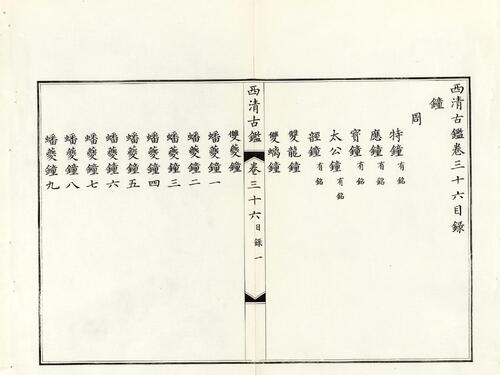 西清古鑑卷三十六目錄
鐘
周
特鐘有銘
應鐘有銘
寶鐘有銘
太公鐘有銘
諲鐘有銘
雙龍鐘
雙螭鐘
西清古鑑 卷三十六目錄 一
雙夔鐘
蟠夔鐘一
蟠夔鐘二
蟠夔鐘三
蟠夔鐘四
蟠夔鐘五
蟠夔鐘六
蟠夔鐘七
蟠夔鐘八
蟠夔鐘九